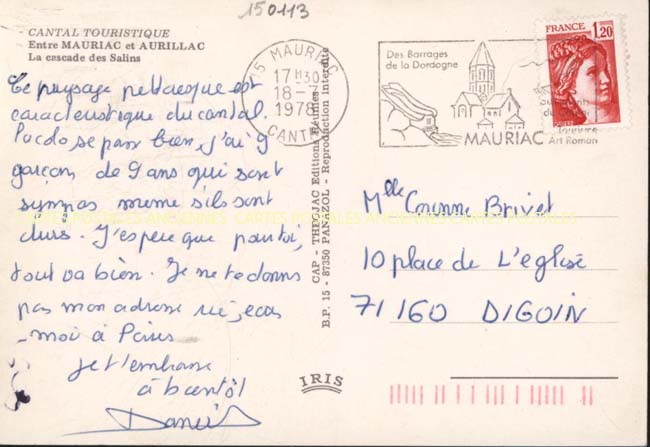 150113
CANTAL TOURISTIQUE
Entre MAURIAC et AURILLAC
La cascade des Salins
Ce paysage pittoresque est
caractéristique du cantal.
se passe bien, j'ai 9
garçons de 9 ans qui sont
sympas même s'ils sont
durs. J'espère que pour toi,
tout va bien. Je ne te donne
pas mon adresse ici, ecris
-moi à Paris
je t'embrasse
à bientôt
Daniel
CAP - THEOJAC Editions Réunies
B.P. 15 - 87350 PANAZOL - Reproduction interdite
IRIS
15 MAURIAC
17 H30
18-7
1978
CANTAL
Des Barrages
de la Dordogne
MAURIAC
Art Roman
FRANCE
1,20
Mlle Corinne Brivet
10 place de L'eglise
71160 DIGOIN
CARTES POSTALES ANCIENNES CARTES POSTALES ANCIENNES CARTES POSTALES